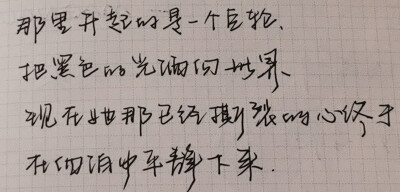 那里升起的是一个巨轮.
把黑色的光洒向世界.
现在她那已经撕裂的心终于
在闪泪中平静下来.